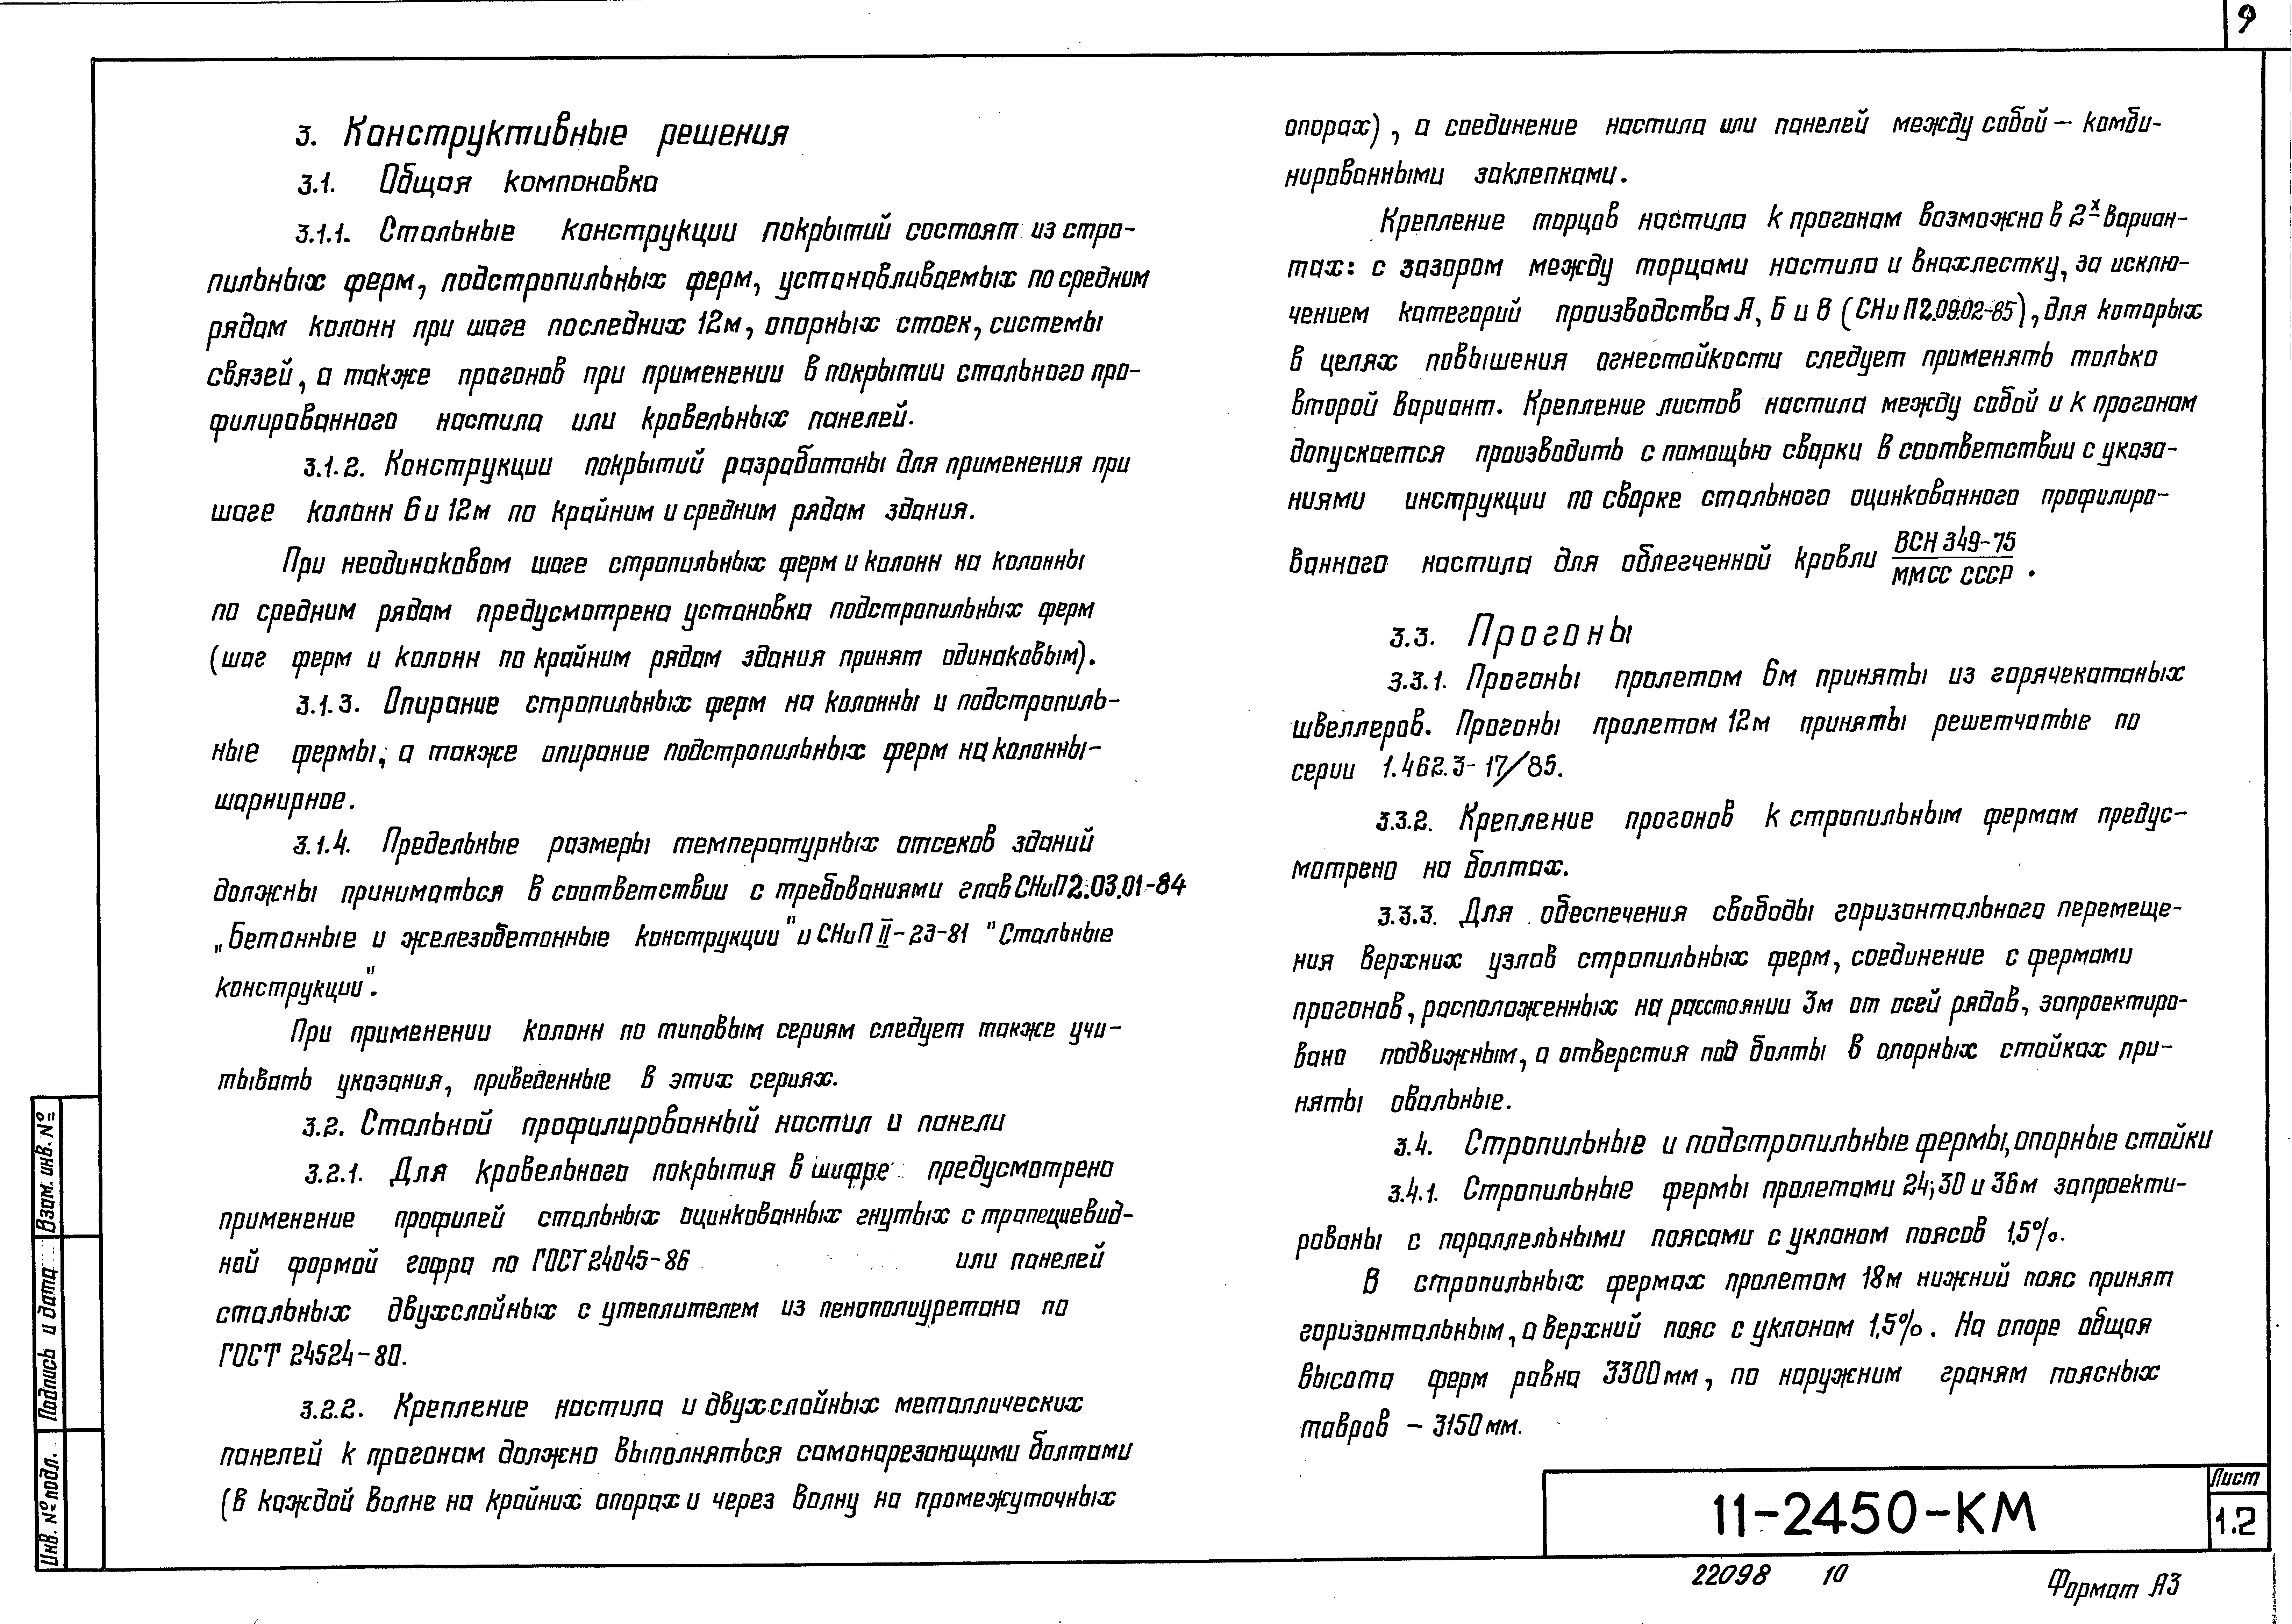 9
3. Конструктивные решения
3.1. Общая компоновка
3.1.1. Стальные конструкции покрытий состоят из стро-
пильных ферм, подстропильных ферм, устанавливаемых по средним
рядам колонн при шаге последних 12м, опорных стоек, системы
связей, а также прогонов при применении в покрытии стального про-
филированного настила или кровельных панелей.
3.1.2. Конструкции покрытий разработаны для применения при
шаге колонн 6 и 12м по крайним и средним рядам здания.
При неодинаковом шаге стропильных ферм и колонн на колонны
по средним рядам предусмотрена установка подстропильных ферм
(шаг ферм и колонн по крайним рядам здания принят одинаковым).
3.1.3. Опирание стропильных ферм на колонны и подстропиль-
ные фермы, а также опирание подстропильных ферм на колонны-
шарнирное.
3.1.4. Предельные размеры температурных отсеков зданий
должны приниматься в соответствии с требованиями глав СНиП2.03.01-84
„Бетонные и железобетонные конструкции" и СНиП II-23-81 "Стальные
конструкции".
При применении колонн по типовым сериям следует также учи-
тывать указания, приведенные в этих сериях.
3.2. Стальной профилированный настил и панели
3.2.1. Для кровельного покрытия в шифре предусмотрено
применение профилей стальных оцинкованных гнутых с трапециевид-
ной формой гофра по ГОСТ 24045-86 или панелей
стальных двухслойных с утеплителем из пенополиуретана по
ГОСТ 24524-80.
3.2.2. Крепление настила и двухслойных металлических
панелей к прогонам должно выполняться самонарезающими болтами
(в каждой волне на крайних опорах и через волну на промежуточных
опорах), а соединение настила или панелей между собой — комби-
нированными заклепками.
Крепление торцов настила к прогонам возможно в 2х вариан-
тах: с зазором между торцами настила и внахлестку, за исклю-
чением категорий производства А, Б и В (СНиП2.09.02-85), для которых
в целях повышения огнестойкости следует применять только
второй вариант. Крепление листов настила между собой и к прогонам
допускается производить с помощью сварки в соответствии с указа-
ниями инструкции по сварке стального оцинкованного профилиро-
ванного настила для облегченной кровли ВСН 349-75
ММСС СССР.
3.3. Прогоны
3.3.1. Прогоны пролетом 6м приняты из горячекатаных
швеллеров. Прогоны пролетом 12м приняты решетчатые по
серии 1.462.3-17/85.
3.3.2. Крепление прогонов к стропильным фермам предус-
мотрено на болтах.
3.3.3. Для обеспечения свободы горизонтального перемеще-
ния верхних узлов стропильных ферм, соединение с фермами
прогонов, расположенных на расстоянии 3м от осей рядов, запроектиро-
вано подвижным, а отверстия под болты в опорных стойках при-
няты овальные.
3.4. Стропильные и подстропильные фермы, опорные стойки
3.4.1. Стропильные фермы пролетами 24;30 и 36м запроекти-
рованы с параллельными поясами с уклоном поясов 1,5%.
В стропильных фермах пролетом 18м нижний пояс принят
горизонтальным, а верхний пояс с уклоном 1,5%. На опоре общая
высота ферм равна 3300мм, по наружним граням поясных
тавров — 3150мм.
Взам. инв. №
Подпись и дата
Инв. № подл.
11-2450-КМ
Лист
1.2
22098 10
Формат А3